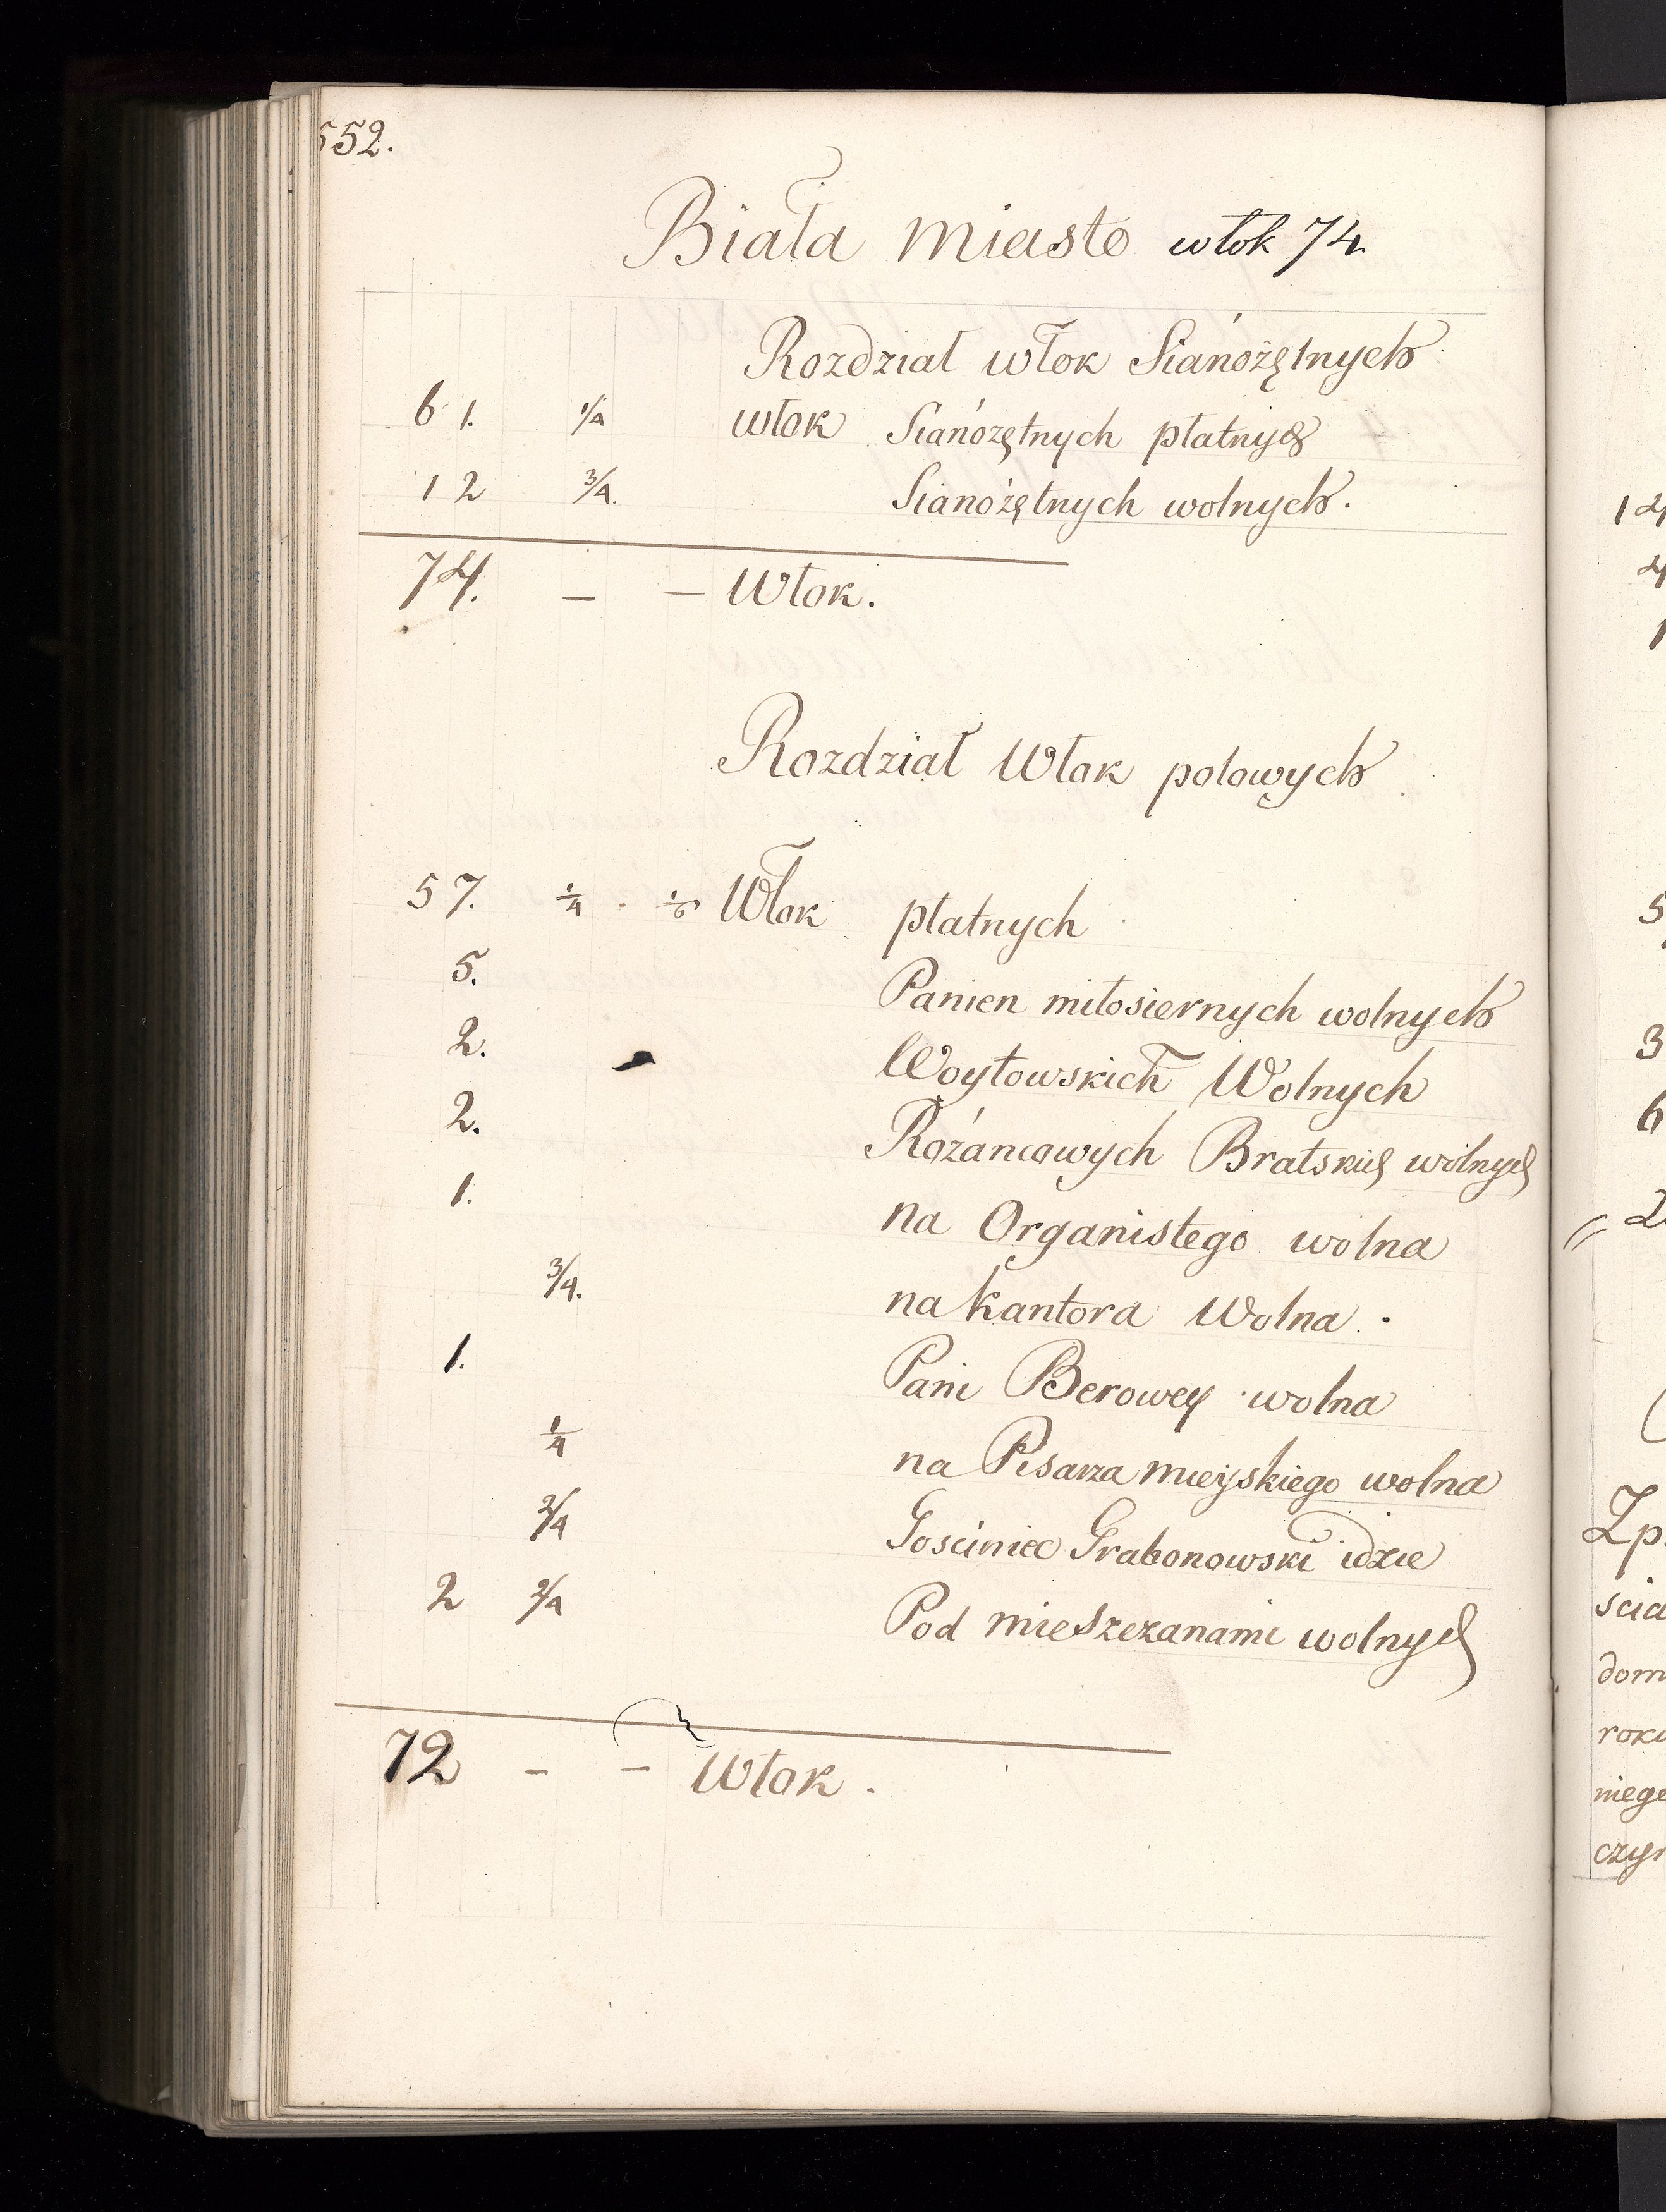 552.
Biała miasto włok 74.
Rozdział włok Sianożętnych
61. 1/4 włok Sianożętnych płatnych
12 3/4. Sianożętnych wolnych.
74. — — Włok.
Rozdział Włok polowych
57. 1/4 1/6 Włok płatnych
5. Panien miłosiernych wolnych
2. Woytowskich Wolnych
2. Rożancowych Bratskich wolnych
1. na Organistego wolna
3/4. na kantora Wolna.
1. Pani Berowey wolna
1/4 na Pisarza mieyskiego wolna
2/4 Gosciniec Grabonowski idzie
2 2/4 Pod mieszczanami wolnych
72 — — Włok.